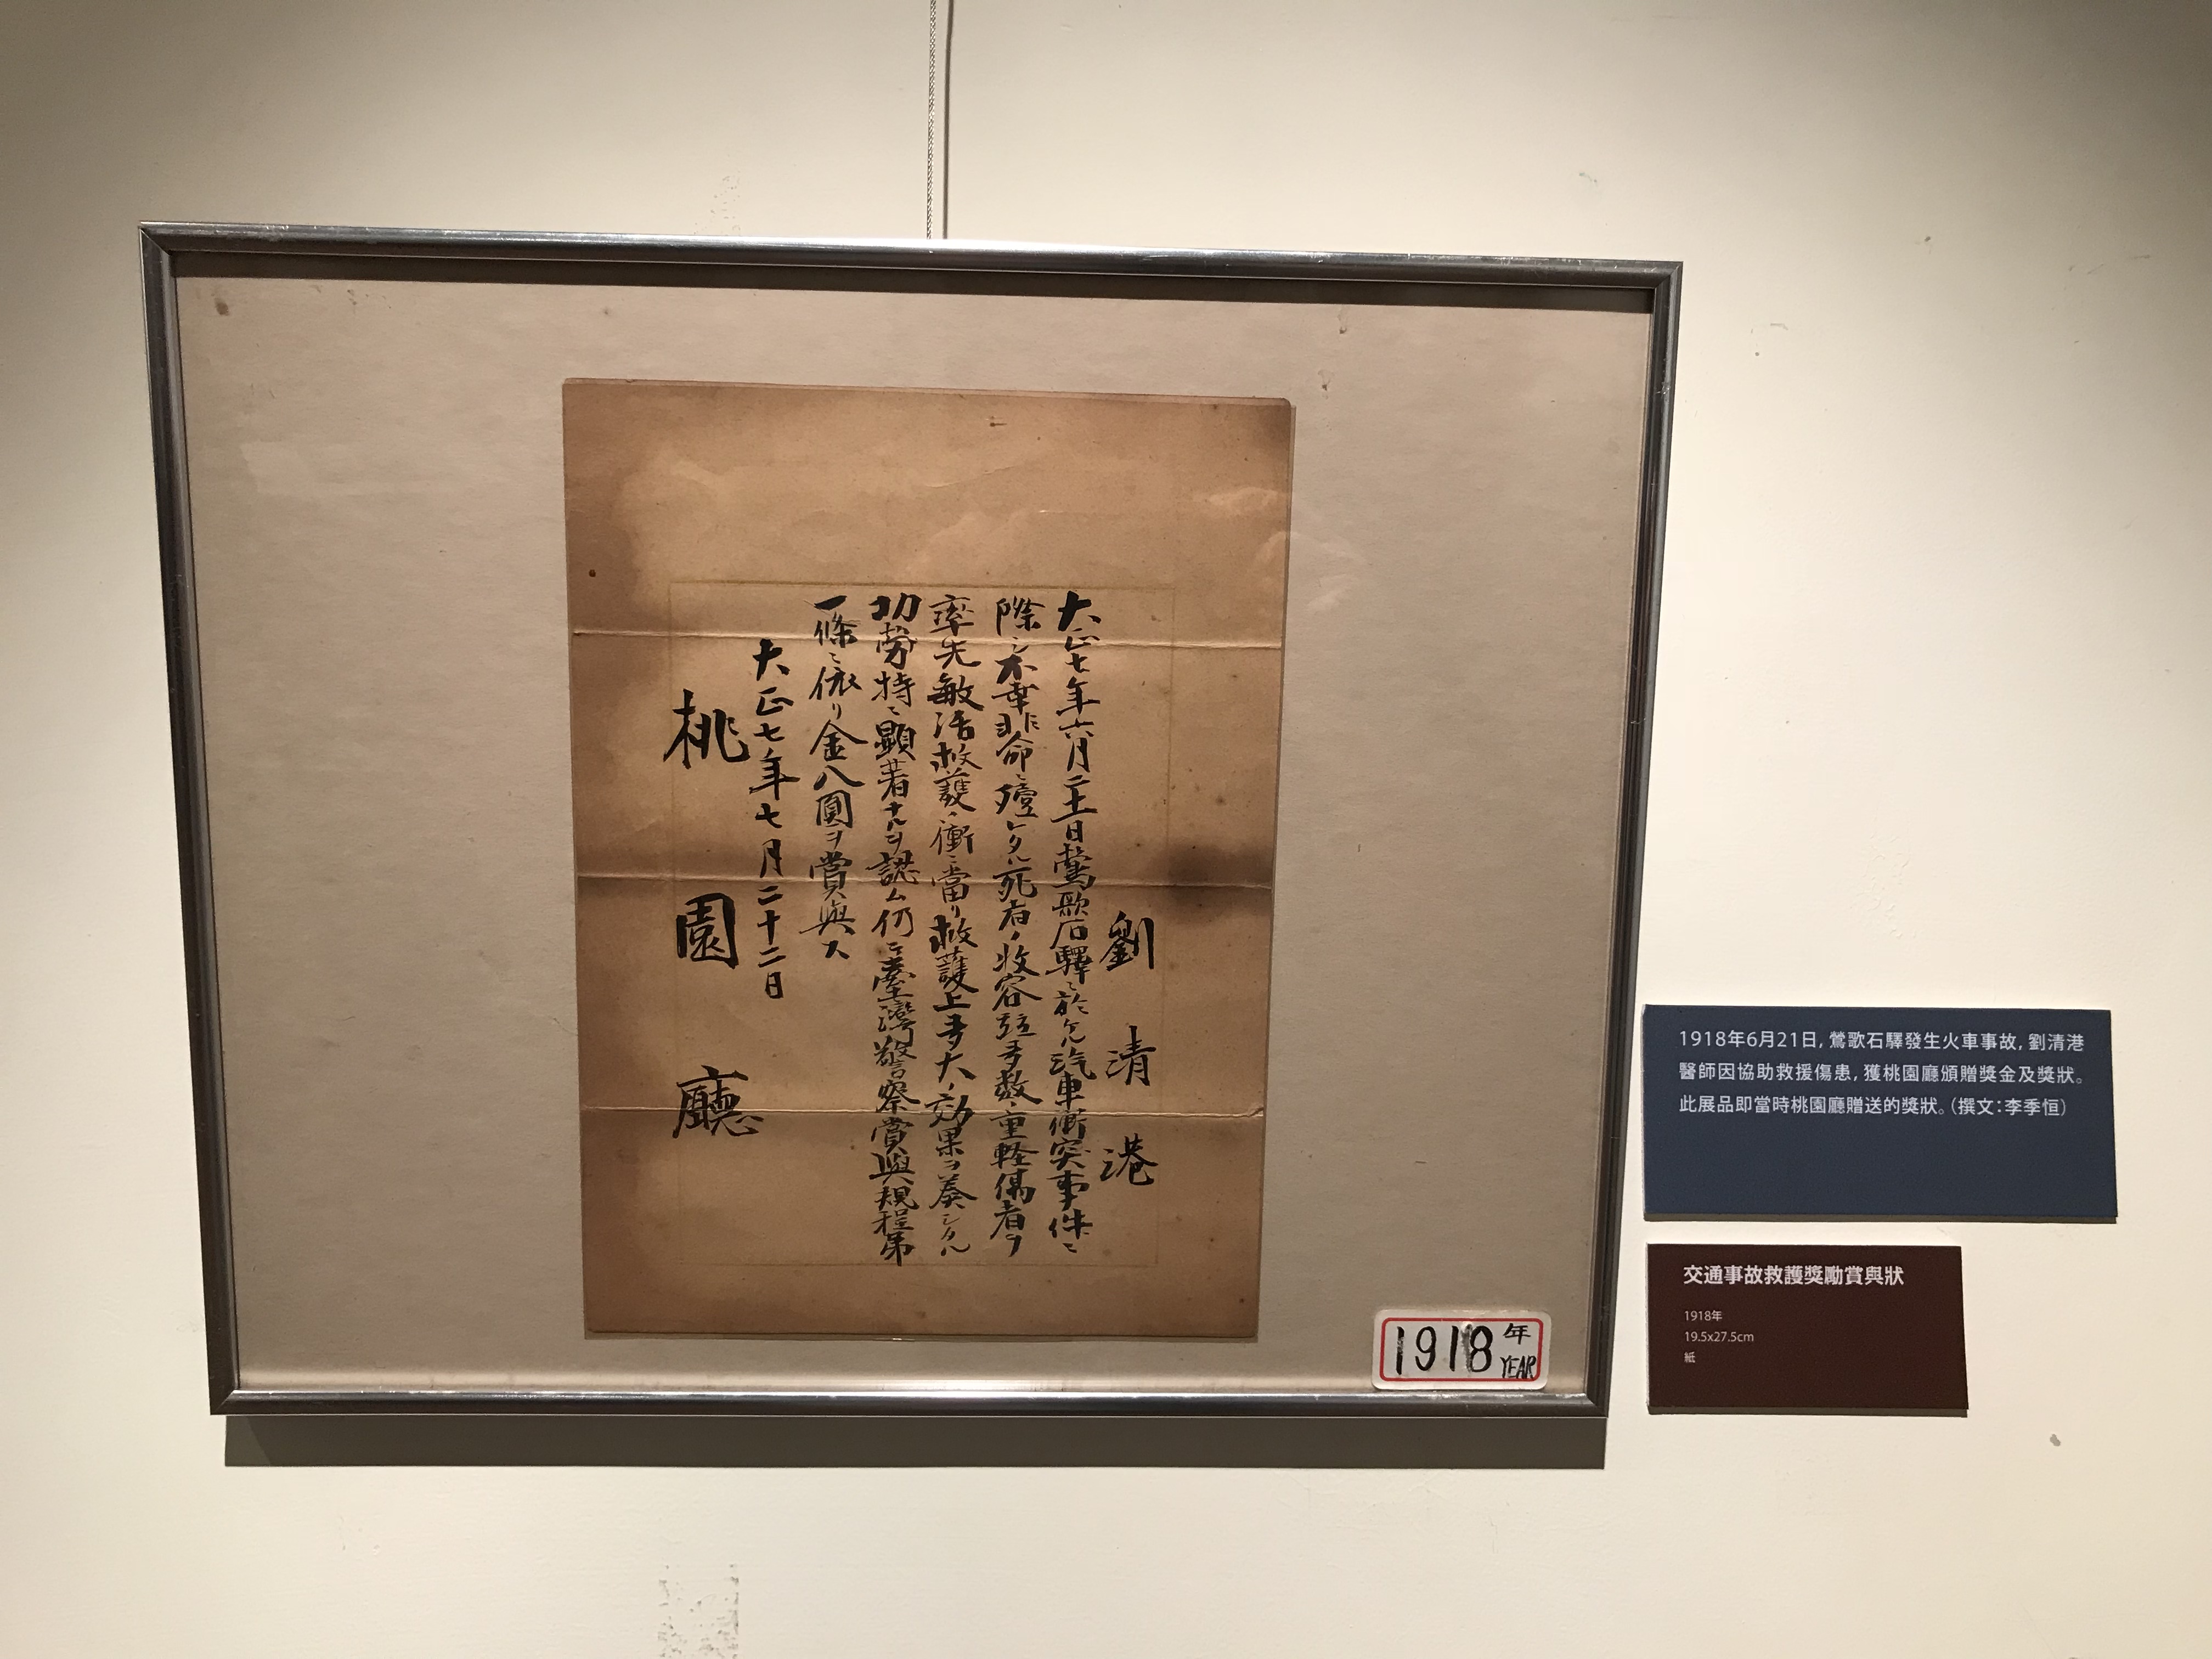 劉清港
大正七年六月二十一日鶯歌石驛ニ於ケル汽車衝突事件ニ
際シ不幸非命ニ殪レタル死者ノ收容並多数ノ重軽傷者ヲ
率先敏活救護ノ衝ニ當リ救護上多大ノ効果ヲ奏シタル
功勞特ニ顯著ナルヲ認ム仍テ臺灣警察賞與規程第
一條ニ依リ金八圓ヲ賞與ス
大正七年七月二十二日
桃園廳
1918年
YEAR
1918年6月21日，鶯歌石驛發生火車事故，劉清港
醫師因協助救援傷患，獲桃園廳頒贈獎金及獎狀。
此展品即當時桃園廳贈送的獎狀。（撰文：李季恒）
交通事故救護獎勵賞與狀
1918年
19.5x27.5cm
紙